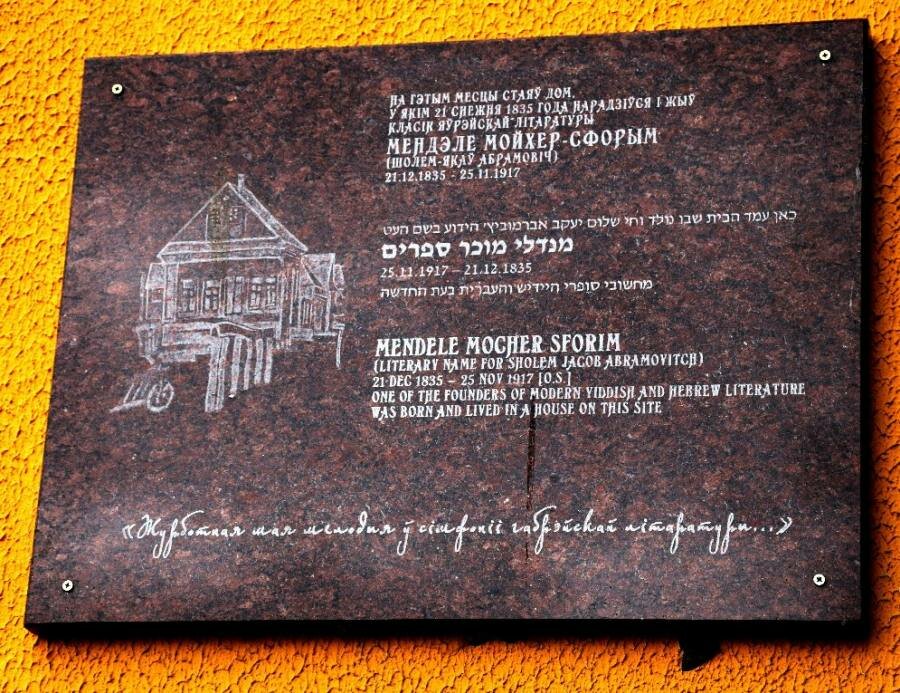 НА ГЭТЫМ МЕСЦЫ СТАЯЎ ДОМ,
У ЯКІМ 21 СНЕЖНЯ 1835 ГОДА НАРАДЗІЎСЯ І ЖЫЎ
КЛАСІК ЯЎРЭЙСКАЙ ЛІТАРАТУРЫ
МЕНДЭЛЕ МОЙХЕР-СФОРЫМ
(ШОЛЕМ-ЯКАЎ АБРАМОВІЧ)
21.12.1835 - 25.11.1917
כאן עמד הבית שבו נולד וחי שלום יעקב אברמוביץ' הידוע בשם העט
מנדלי מוכר ספרים
25.11.1917 – 21.12.1835
מחשובי סופרי היידיש והעברית בעת החדשה
MENDELE MOCHER SFORIM
(LITERARY NAME FOR SHOLEM JACOB ABRAMOVITCH)
21 DEC 1835 – 25 NOV 1917 [O.S.]
ONE OF THE FOUNDERS OF MODERN YIDDISH AND HEBREW LITERATURE
WAS BORN AND LIVED IN A HOUSE ON THIS SITE
«Журботная мая мелодыя ў сімфоніі габрэйскай літаратуры...»